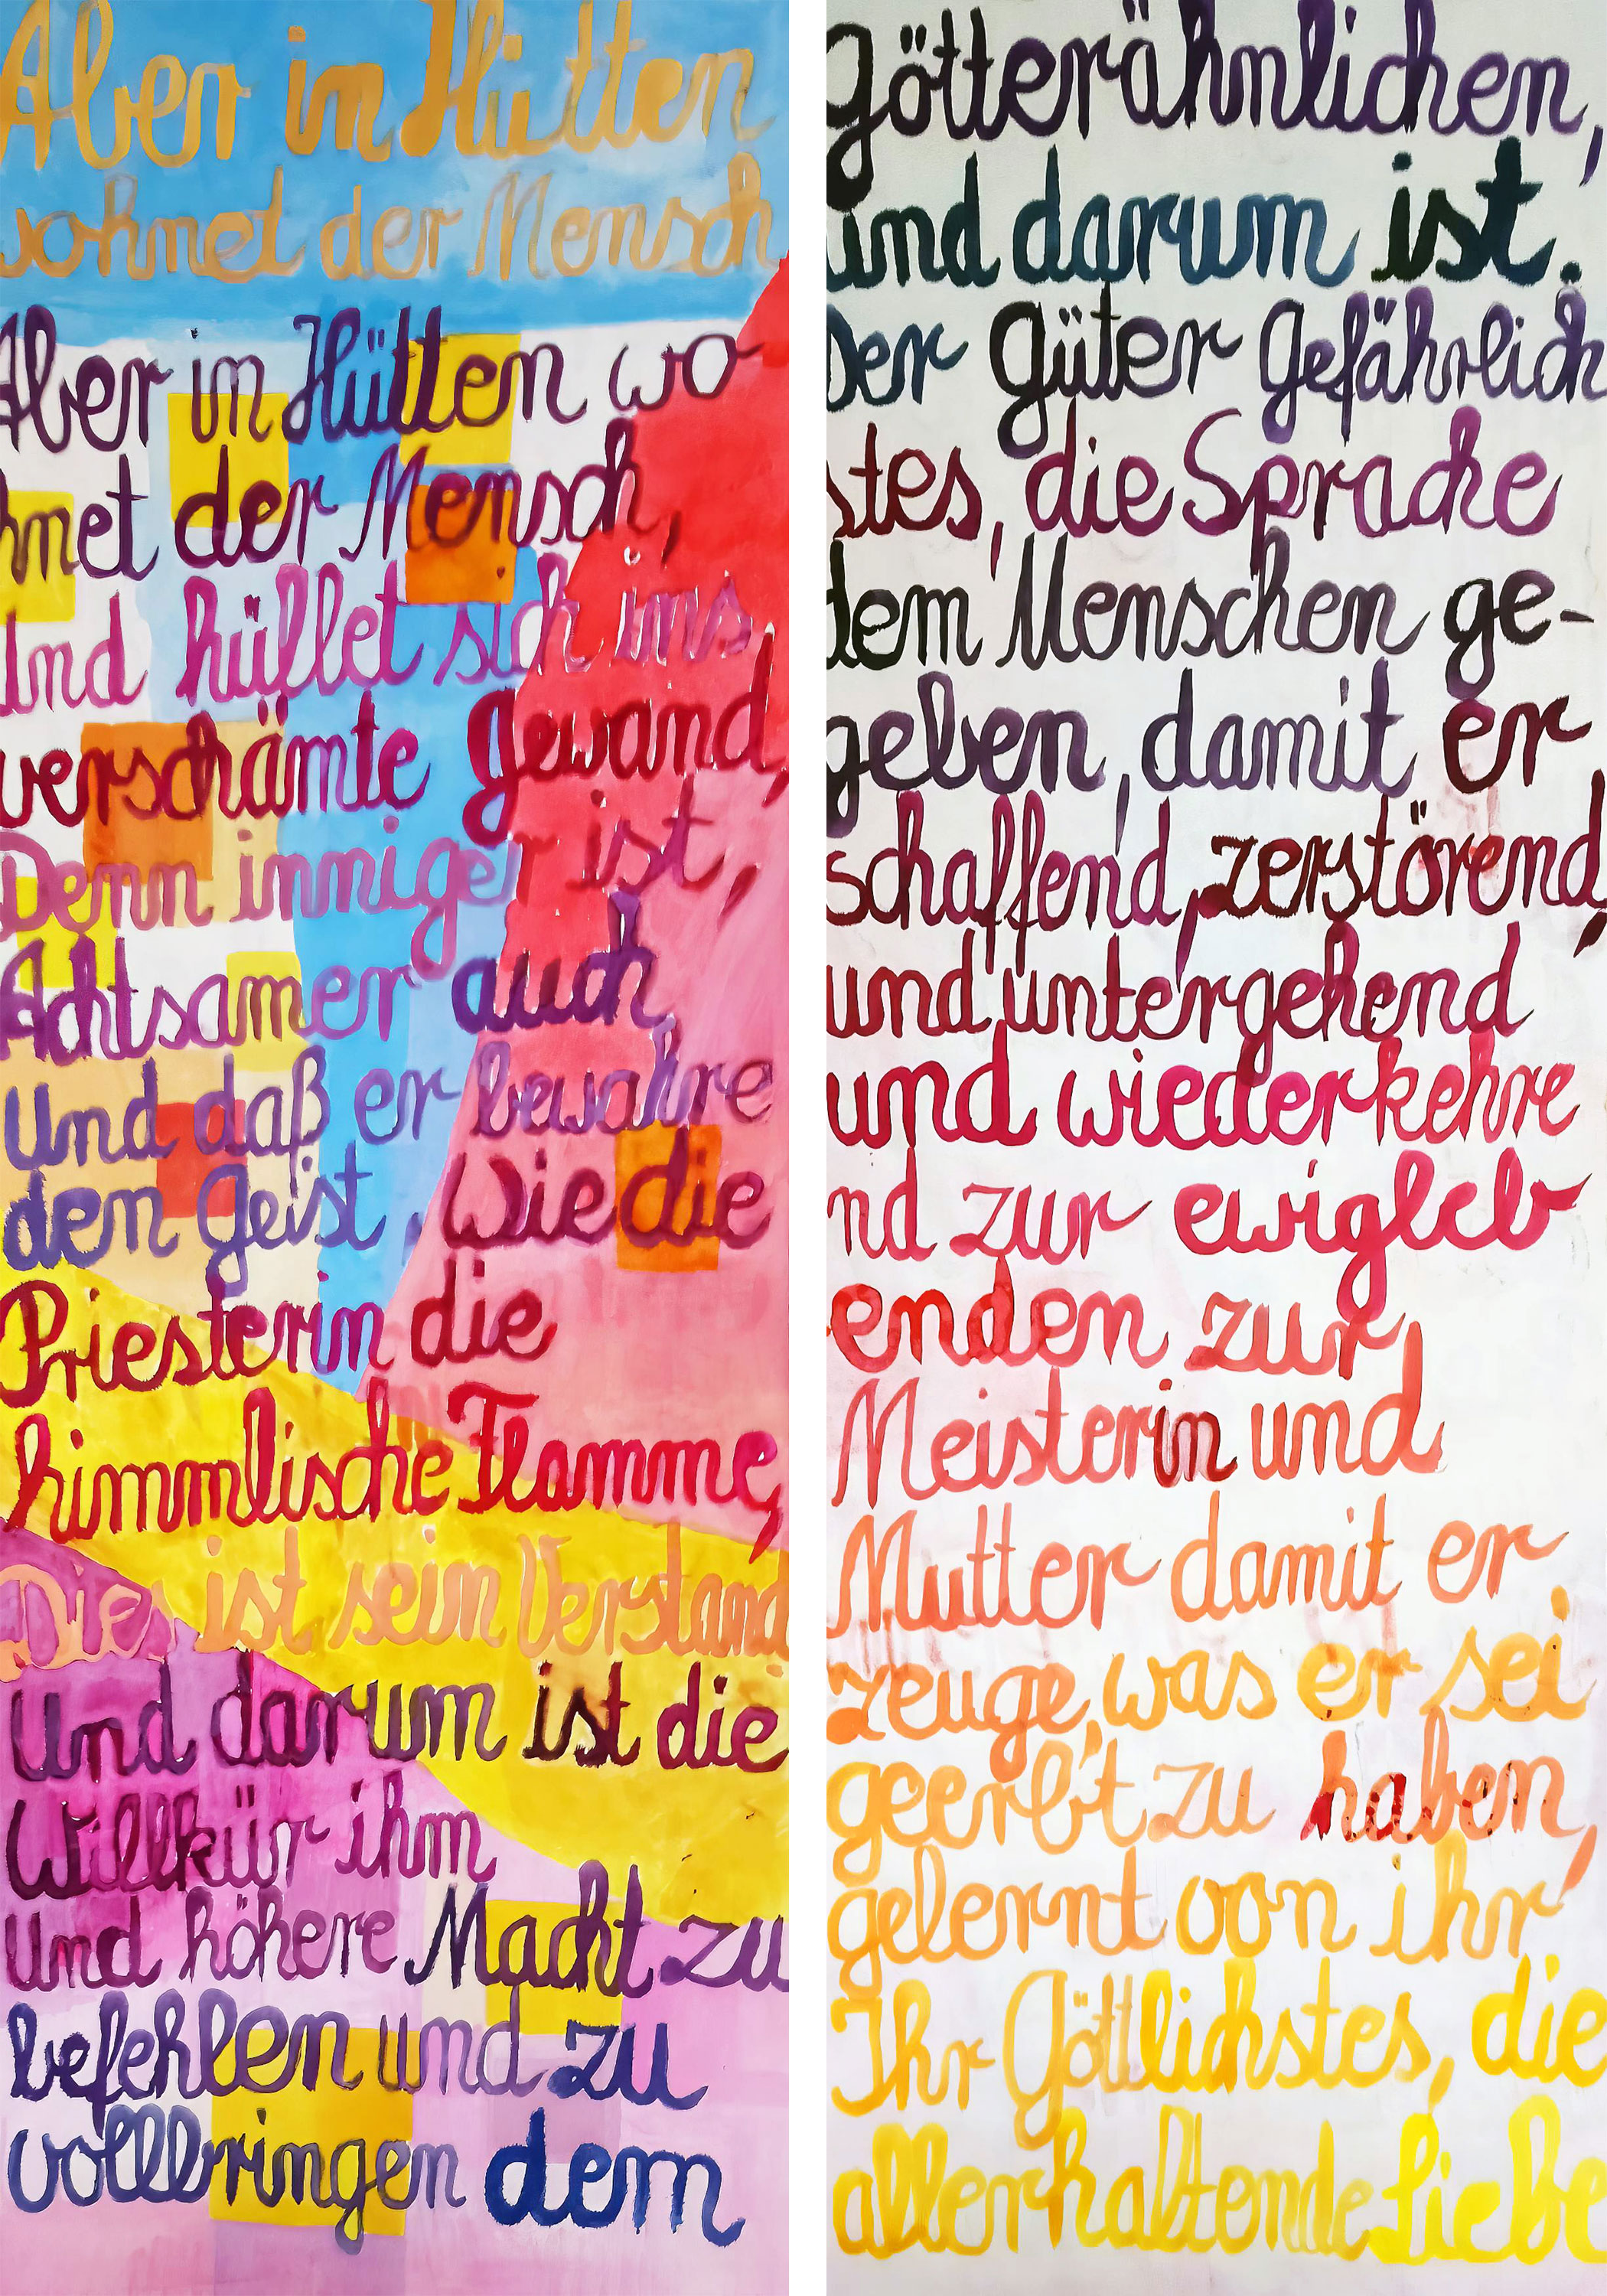 Aber in Hütten
wohnet der Mensch
Aber in Hütten wo
hnet der Mensch,
Und hüllet sich ins
verschämte Gewand,
Denn inniger ist,
Achtsamer auch,
Und daß er bewahre
den Geist, Wie die
Priesterin die
himmlische Flamme,
Dies ist sein Verstand
Und darum ist die
Willkür ihm
und höhere Macht zu
befehlen und zu
vollbringen dem
Götterähnlichen,
und darum ist.
Der Güter Gefährlich
stes, die Sprache
dem Menschen ge-
geben, damit er
schaffend, zerstörend,
und untergehend
und wiederkehre
nd zur ewigleb
enden zur
Meisterin und
Mutter damit er
zeuge, was er sei
geerb't zu haben,
gelernt von ihr
Ihr Göttlichstes, die
allerhaltende Liebe